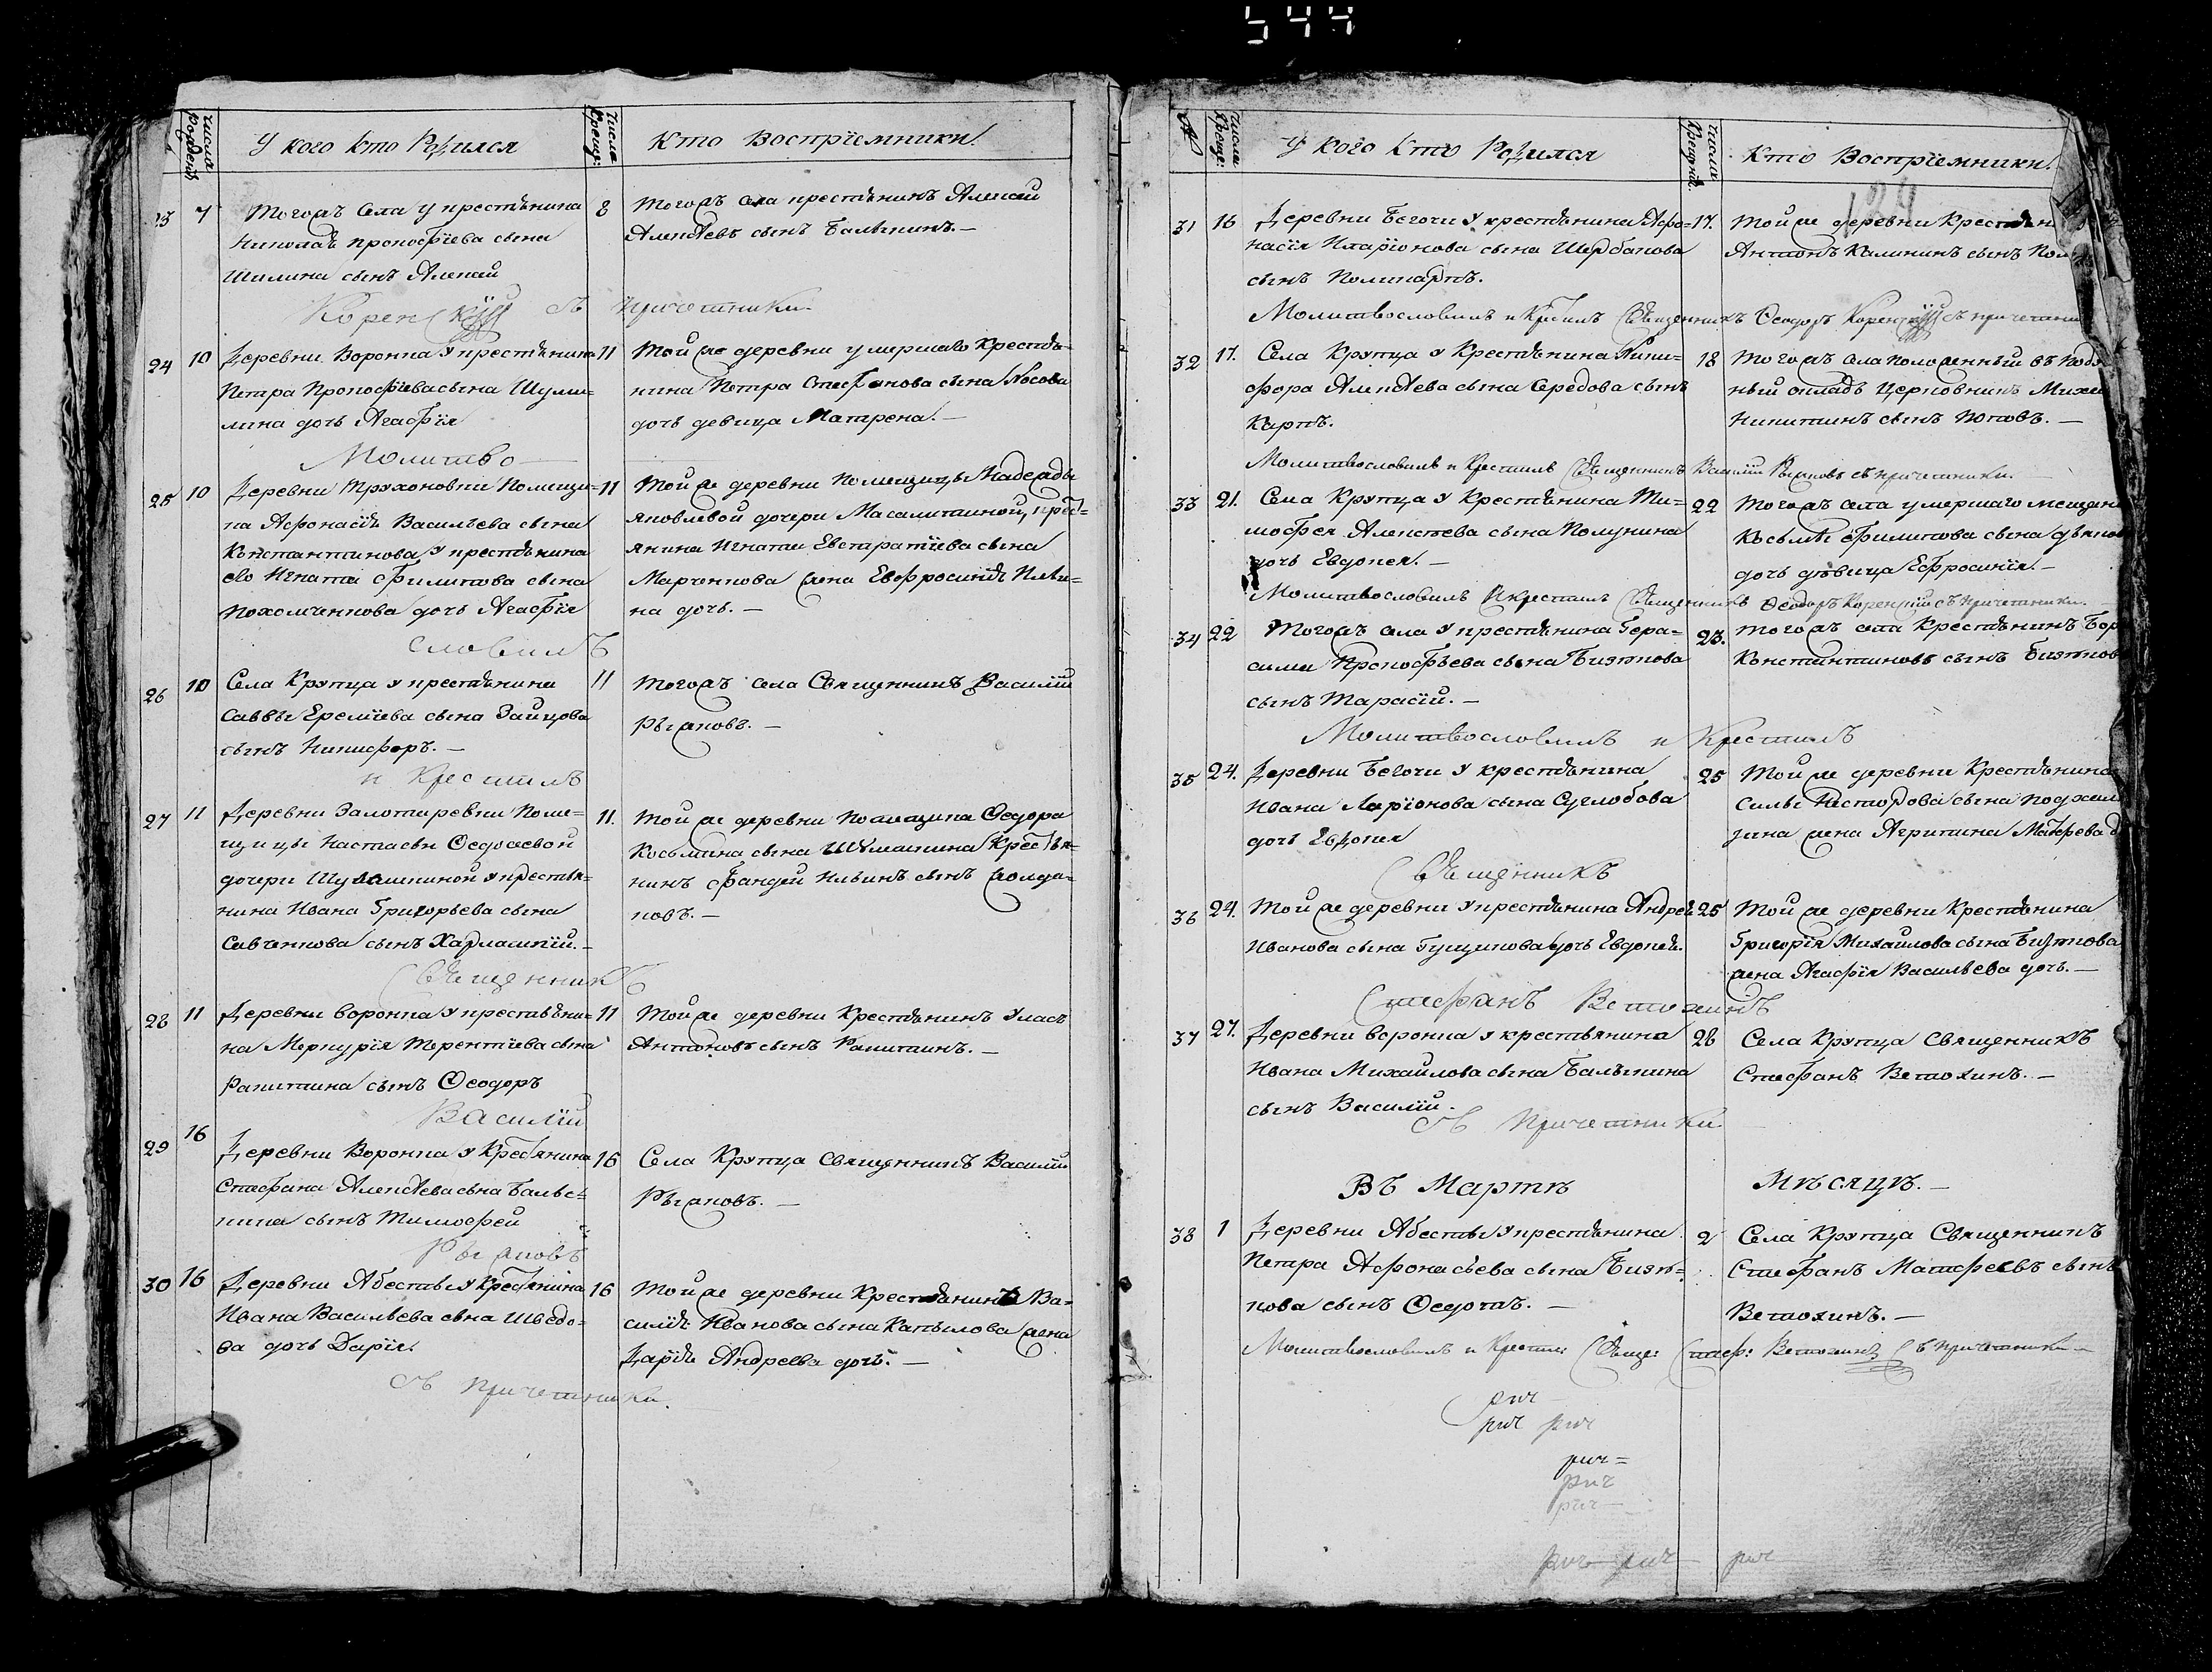 544
числа рожденія
У кого кто Родился
числа крещ:
Кто Воспріемники.
23 7
Тогожъ села у крестьянина
Николая Прокофіева сына
Шилина сынъ Алексѣй
8
Тогожъ села крестьянинъ Алексѣй
Алексѣевъ сынъ Балыкинъ.—
Коренскій съ причетники.
24 10
Деревни Воронка у крестьянина
Петра Прокофіева сына Шули=
лина дочь Агафія
11
Той же деревни умершаго крестья=
нина Петра Стефанова сына Носова
дочь девица Матрена.—
Молитво
25 10
Деревни Трухоновки Помещи=
ка Афонасія Васильева сына
Константинова у крестьянина
его Игната Филипова сына
Похомченкова дочь Агафія
11
Той же деревни помещицы Надежды
Яковлевой дочери Масалитиной, крест=
янина Игната Евстратіева сына
Марченкова жена Евфросинія Ильи=
на дочь.—
словилъ
26 10
Села Крупца у крестьянина
Саввы Еремѣева сына Зайцова
сынъ Никифоръ.—
11
Тогожъ села Священникъ Василій
Рыжковъ.—
и Крестилъ
27 11
Деревни Залотаревки Поме=
щицы Настасьи Федосеевой
дочери у крестья=
нина Ивана Григорьева сына
Савченкова сынъ Харлампій.—
11.
Той же деревни помещика Федора
Косьмина сына Крестья=
нинъ Фандей Ильинъ сынъ Жолда=
ковъ.—
Священникъ
28 11
Деревни Воронка у крестьяни=
на Меркурія Терентіева сына
Ракитина сынъ Феодоръ
11
Той же деревни Крестьянинъ Уласъ
Антоновъ сынъ Ракитинъ.—
Василій
29 16
Деревни Воронка у Крестьянина
Стефана Алексѣева сына Балы=
кина сынъ Тимофей
16
Села Крупца Священникъ Василій
Рыжковъ.—
Рыжковъ
30 16
Деревни Абесты у Крестьянина
Ивана Васильева сына Шведо=
ва дочь Дарія.
16
Той же деревни Крестьянина Ва=
силія Иванова сына Капылова жена
Дарія Андреева дочь.—
съ причетники.
У кого кто Родился
Кто Воспріемники.
31 16
Деревни Бегочи у крестьянина Афо=
насія Иларіонова сына Щербакова
сынъ Поликарпъ.
17.
Той же деревни
Антонъ Калининъ сынъ
Молитвословилъ и Крестилъ Священникъ Феодоръ Коренскій съ
32 17.
Села Крупца у Крестьянина Ники=
фора Алексѣева сына Середова сынъ
Карпъ.
18
Тогожъ села положенный въ
ный окладъ Церковникъ
Никитинъ сынъ Поповъ.—
Молитвословилъ и Крестилъ Священникъ Василій Рыжковъ съ причетники.
33 21.
Села Крупца у Крестьянина Ти=
мофея Алексѣева сына Полунина
дочь Евдокея.—
22
Тогожъ села умершаго
Косьмы Филипова сына
дочь девица Ефросинія.—
Молитвословилъ И крестилъ Священникъ Феодоръ Коренскій съ причетники.
34 22
Тогожъ села У крестьянина Гера=
сима Прокофьева сына Бизюкова
сынъ Тарасій.—
23.
Тогожъ села Крестьянинъ
Константиновъ сынъ
Молитвословилъ и Крестилъ
35 24.
Деревни Бегочи у крестьянина
Ивана Ларіонова сына Суглобова
дочь Евдокея
25
Той же деревни Крестьянина
Силы Несторова сына
жена Агрипина
Священникъ
36 24.
Той же деревни у крестьянина Андрея
Иванова сына Гущинова дочь Евдокея.
25
Той же деревни Крестьянина
Григорія Михаилова сына Бизюкова
жена Агафія Васильева дочь.—
Стефанъ Ветохинъ
37 27.
Деревни Воронка у крестьянина
Ивана Михаилова сына Балыкина
сынъ Василій.
28
Села Крупца Священникъ
Стефанъ Ветохинъ.—
съ причетники
Въ Мартѣ Мѣсяцѣ.—
38 1
Деревни Абесты у крестьянина
Петра Афонасьева сына Бизю=
кова сынъ Федотъ.—
2
Села Крупца Священникъ
Стефанъ Матфеевъ сынъ
Ветохинъ.—
Молитвословилъ и Крестилъ Свяще: Стеф: Ветохинъ съ причетники